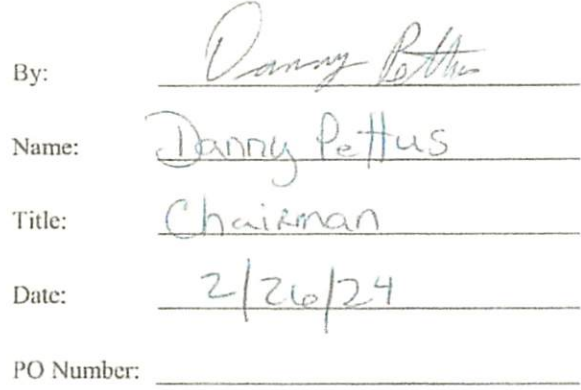 By: Danny Pettus
Name: Danny Pettus
Title: Chairman
Date: 2/26/24
PO Number: